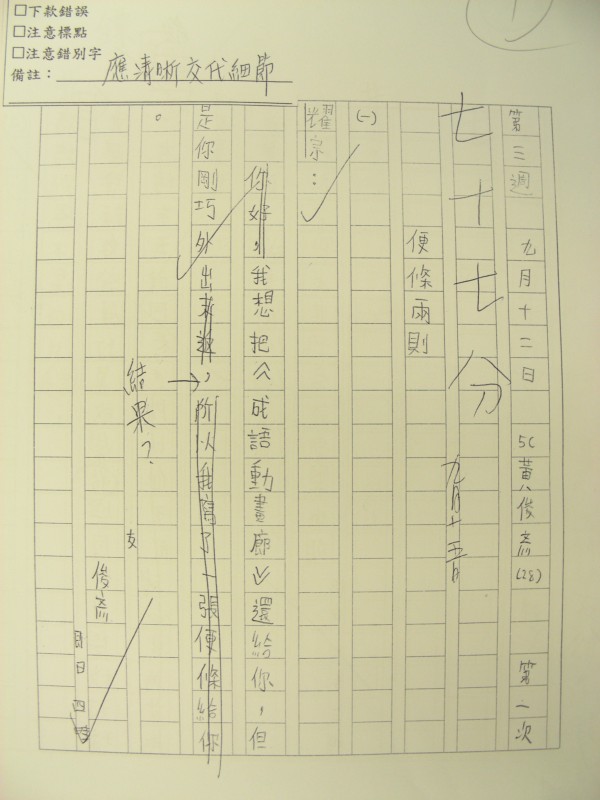 □下款錯誤
□注意標點
□注意錯別字
備註：應清晰交代細節
第三週 九月十二日 5C 黃俊彥 (28) 第一次
七十七分 九月十五日
便條兩則
(一)
耀宗：
你好，我想把︽成語動畫廊︾還給你，但
是你剛巧外出未返，所以我寫了一張便條給你
。
結果？
友
俊彥
即日 四時